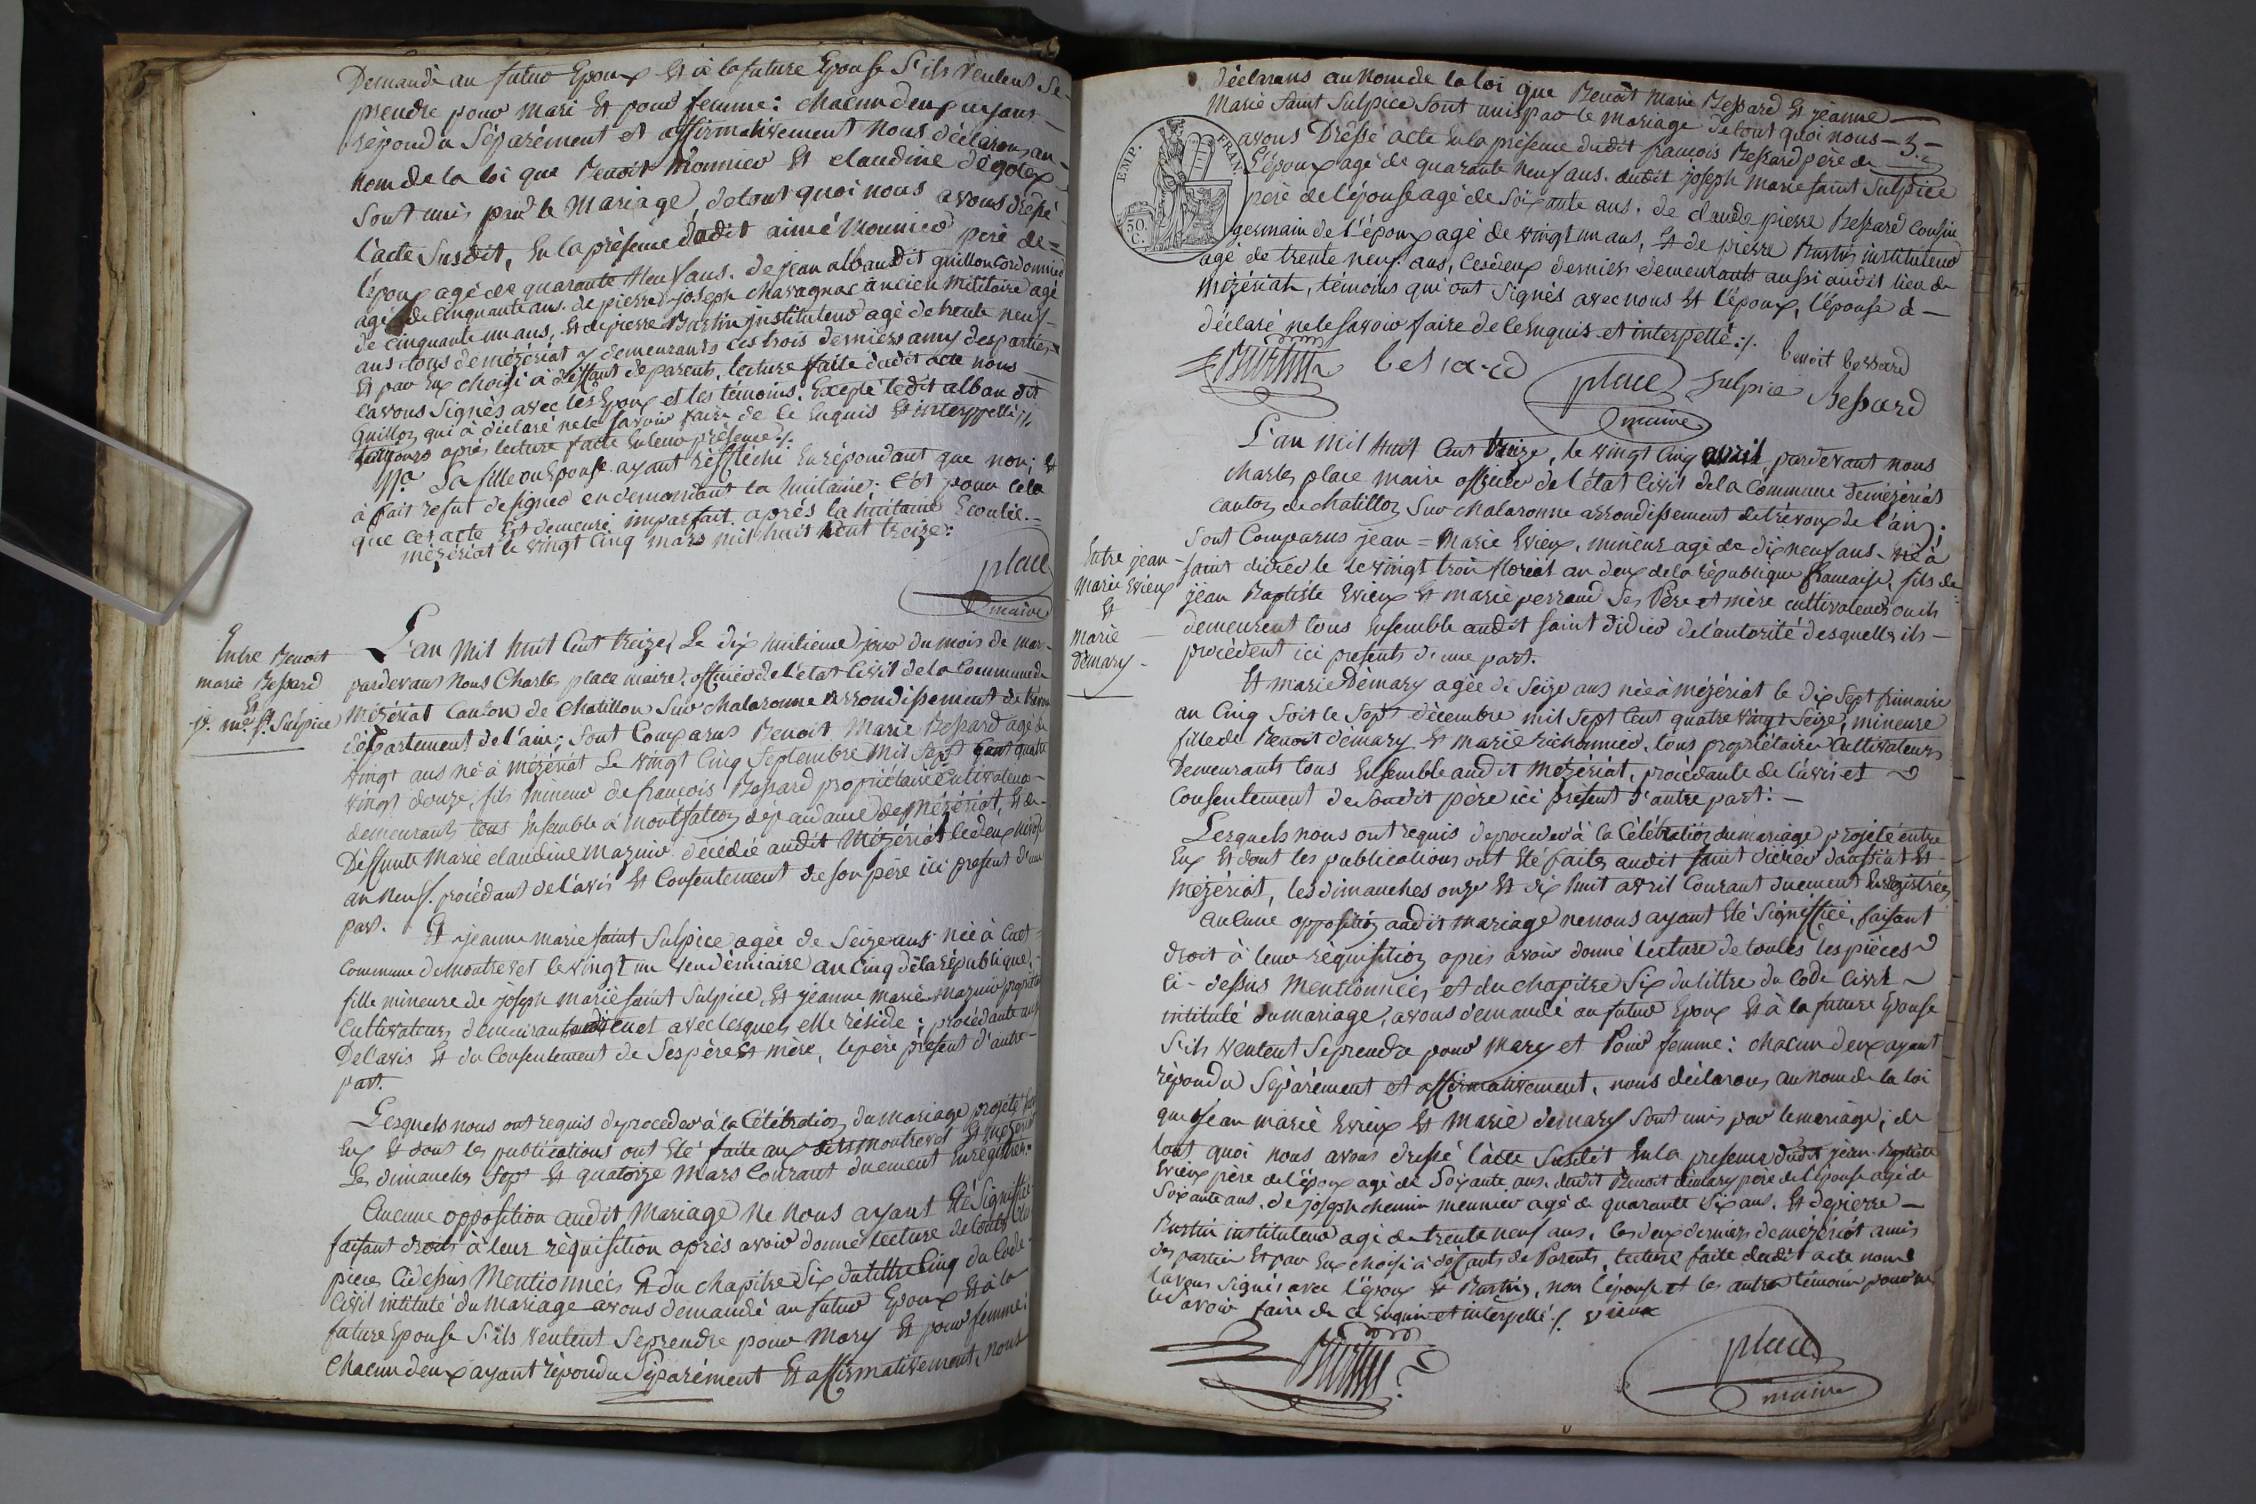 Demandé au futur Epoux Et à la future Epouse S'ils veulent se
prendre pour mari Et pour femme: chacun deux ayant
répondu Séparément et affirmativement Nous déclarons au
nom de la loi que Benoit Monnier Et claudine dégolex
Sont unis par le Mariage, de tout quoi nous avons dressé
l'acte Susdit, En la présence dudit aimé Monnier père de
l'époux agé de quarante Neuf ans. de jean alban dit guillon Cordonnier
agé de Cinquante ans. de pierre joseph chavagnac ancien militaire agé
de cinquante un ans, Et de pierre Burtin instituteur agé de trente neuf
ans. tous de mézériat y demeurants ces trois derniers amys des parties
Et par Eux choisi à déffaut de parents, lecture faite dudit acte nous
l'avons Signés avec les Epoux et les témoins. Excepté ledit alban dit
Guillon qui à déclaré ne le savoir faire de ce Enquis Et interppellé //.
après lecture faite En leur présence ./.
Nta La fille ou Epouse ayant réffléchi En répondant que non; Et
à fait refut de signer en demandant la huitaine; C'est pour cela
que cet acte Est demeuré imparfait. après la huitaine Ecoulée.
mézériat le vingt Cinq mars mil huit Cent treize:
place
maire
Entre Benoit
marie Bessard
Et
je. me. st. Sulpice
L'an Mil huit Cent treize, Le dix huitième jour du mois de mars
pardevant Nous Charles place maire, officier de l'état Civil de la Commune de
Mézériat Canton de Chatillon Sur chalaronne arrondissement de trévoux
département de l'ain; Sont Comparus Benoit Marie Bessard agé de
vingt ans né à mézériat Le vingt Cinq Septembre Mil Sept Cent quatre
vingt douze, fils mineur de françois Bessard propriétaire Cultivateur
demeurants tous Ensemble à Montfalcon dépandance de Mézériat, Et de
Deffunte Marie claudine Mazuir décédée audit Mézériat le deux nivose
an neuf. procédant de l'avis Et Consentement de son père ici présent d'une
part.
Et jeanne marie saint Sulpice agée de Seize ans née à Cuet
Commune de montrevel le vingt un vendémiaire an Cinq de la république,
fille mineure de joseph marie saint Sulpice, Et jeanne marie Mazuir propriétaires
Cultivateurs demeurants audit Cuet avec lesquels elle réside; procédante aussi
De l'avis Et du Consentement de Ses père Et mère, le père présent d'autre
part.
Lesquels nous ont requis de procéder à la Célébration du mariage projeté
Eux Et dont les publications ont Eté faite aux dits montrevel Et mézériat
Les dimanches Sept Et quatorze Mars Courant duement Enregistrées.
Aucune opposition audit Mariage Ne Nous ayant Eté Signiffiée
faisant droits à leur réquisition après avoir donné lecture de toutes les
pieces Ci dessus Mentionnées Et du chapitre Six du tittre Cinq du Code
Civil intitulé du Mariage avons demandé au futur Epoux Et à la
future Epouse S'ils veulent Se prendre pour Mary Et pour femme:
Chacun d'eux ayant répondu Séparément Et affirmativement, nous
déclarons au Nom de la loi que Benoit Marie Bessard Et jeanne
Marie Saint Sulpice Sont unis par le mariage de tout quoi nous
avons Dressé acte En la présence dudit françois Bessard père de
l'époux agé de quarante Neuf ans. dudit joseph Marie saint Sulpice
père de l'épouse agé de Soixante ans. de claude pierre Bessard Cousin
germain de l'époux agé de vingt un ans, Et de pierre Burtin instituteur
agé de trente neuf ans, les deux derniers demeurants aussi audit lieu de
Mézériat, témoins qui ont Signés avec nous Et l'époux, l'épouse à
déclaré ne le savoir faire de ce Enquis et interpellé ./.
- 3. -
EMP. FRAN.
50. C.
Burtin besard place maire Sulpice benoit bessard Bessard
L'an Mil Huit Cent treize, le vingt Cinq avril pardevant nous
charles place maire officier de l'état Civil de la Commune de mézériat
canton de chatillon Sur chalaronne arrondissement de trévoux de l'ain;
Entre jean
Marie Evieux
Et
Marie
démary
Sont Comparus jean = Marie Evieux, mineur agé de dix neuf ans né à
saint didier le vingt trois floréal an deux de la république française, fils de
jean Baptiste Evieux Et marie perraud Ses Père et mère cultivateurs où ils
demeurent tous Ensemble audit saint didier de l'autorité desquels ils
procèdent ici présents d'une part.
Et marie Démary agée de Seize ans née à mézériat le dix Sept frimaire
an Cinq Soit le Sept décembre mil Sept Cent quatre vingt Seize, mineure
fille de Benoit démary Et marie richonnier, tous propriétaires Cultivateurs
Demeurants tous Ensemble audit Mézériat, procédante de l'avis et
Consentement de Son dit père ici présent d'autre part:
Lesquels nous ont requis de procéder à la Célébration du mariage projeté entre
Eux Et dont les publications ont Eté faites audit saint didier daussiat Et
Mézériat, les dimanches onze Et dix huit avril Courant duement Enregistrées
Aucune opposition audit mariage ne nous ayant Eté Signiffiée, faisant
droit à leur réquisition après avoir donné lecture de toutes les pièces
Ci-dessus Mentionnées et du chapitre Six du tittre du Code Civil
intitulé du mariage, avons demandé au futur Epoux Et à la future Epouse
S'ils veulent Se prendre pour Mary et Pour femme: chacun d'eux ayant
répondu Séparément et affirmativement, nous déclarons au Nom de la loi
que jean marie Evieux Et Marie démary Sont unis par le mariage; de
tout quoi nous avons dressé l'acte Susdit En la présence dudit jean Baptiste
Evieux père de l'époux agé de Soixante ans. dudit Benoit démary père de l'épouse agé de
Soixante ans, de joseph chemin meunier agé de quarante Six ans. Et de pierre
Burtin instituteur agé de trente neuf ans, les deux derniers de mézériat amis
des parties Et par Eux choisi à déffauts de Parents, lecture faite dudit acte nous
l'avons Signés avec l'époux Et Burtin, non l'épouse et les autres témoins pour ne
le savoir faire de ce Enquis et interpellé ./. vieux
Burtin
place
maire